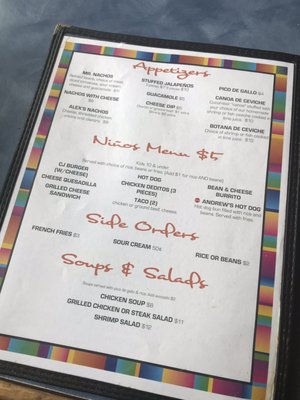 Appetizers
MR. NACHOS
NACHOS WITH CHEESE
$6
ALEX'S NACHOS
STUFFED JALAPEÑOS
GUACAMOLE $5
CHEESE DIP $5
PICO DE GALLO $4
CANOA DE CEVICHE
BOTANA DE CEVICHE
Niños Menu $5
Kids 10 & under
Served with choice of rice, beans or fries. (Add $1 for rice AND beans)
CJ BURGER
(W/ CHEESE)
CHEESE QUESADILLA
GRILLED CHEESE
SANDWICH
HOT DOG
CHICKEN DEDITOS (3
PIECES)
TACO (2)
chicken or ground beef, cheese.
BEAN & CHEESE
BURRITO
ANDREW'S HOT DOG
Hot dog bun filled with rice and
beans. Served with fries.
Side Orders
FRENCH FRIES $3
SOUR CREAM 50¢
RICE OR BEANS $2
Soups & Salads
CHICKEN SOUP $8
GRILLED CHICKEN OR STEAK SALAD $11
SHRIMP SALAD $12